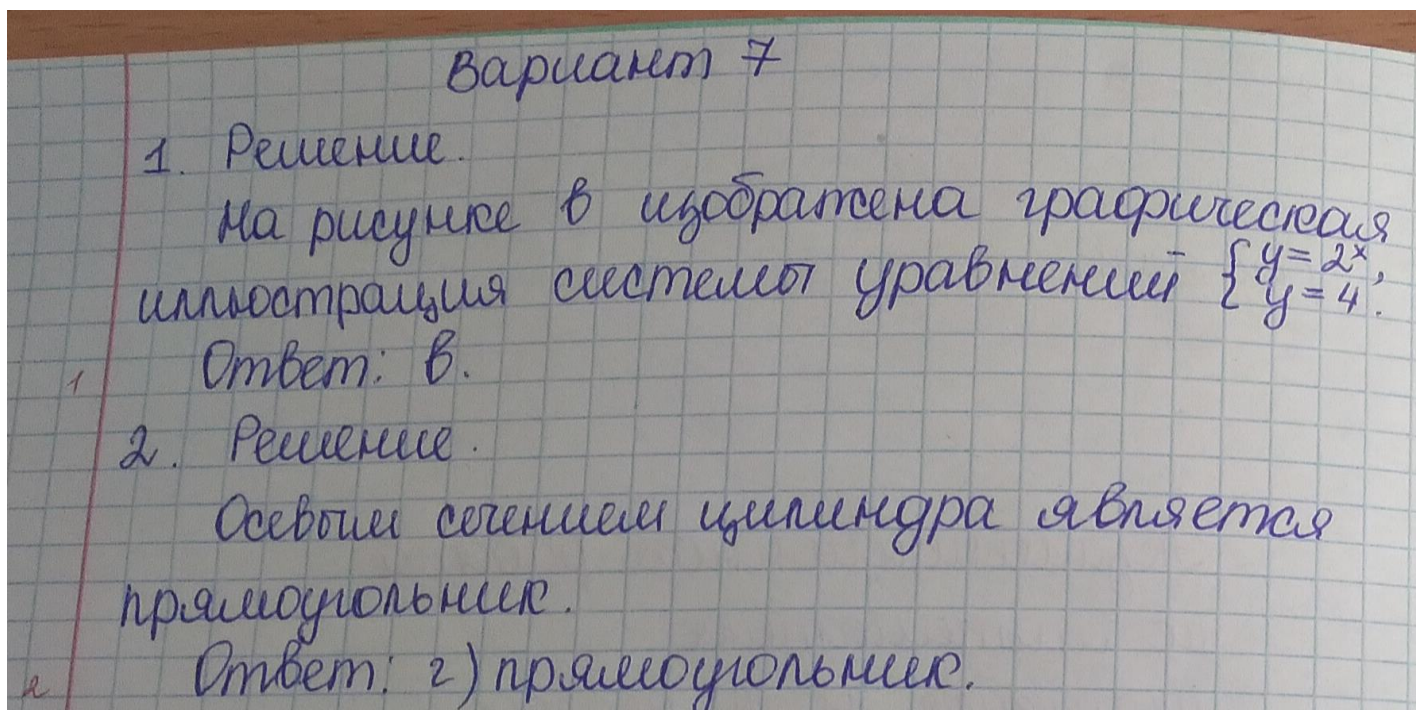 Вариант 7
1. Решение.
На рисунке в изображена графическая
иллюстрация системы уравнений { y = 2ˣ,
y = 4.
Ответ: в.
1
2. Решение.
Осевым сечением цилиндра является
прямоугольник.
Ответ: г) прямоугольник.
2